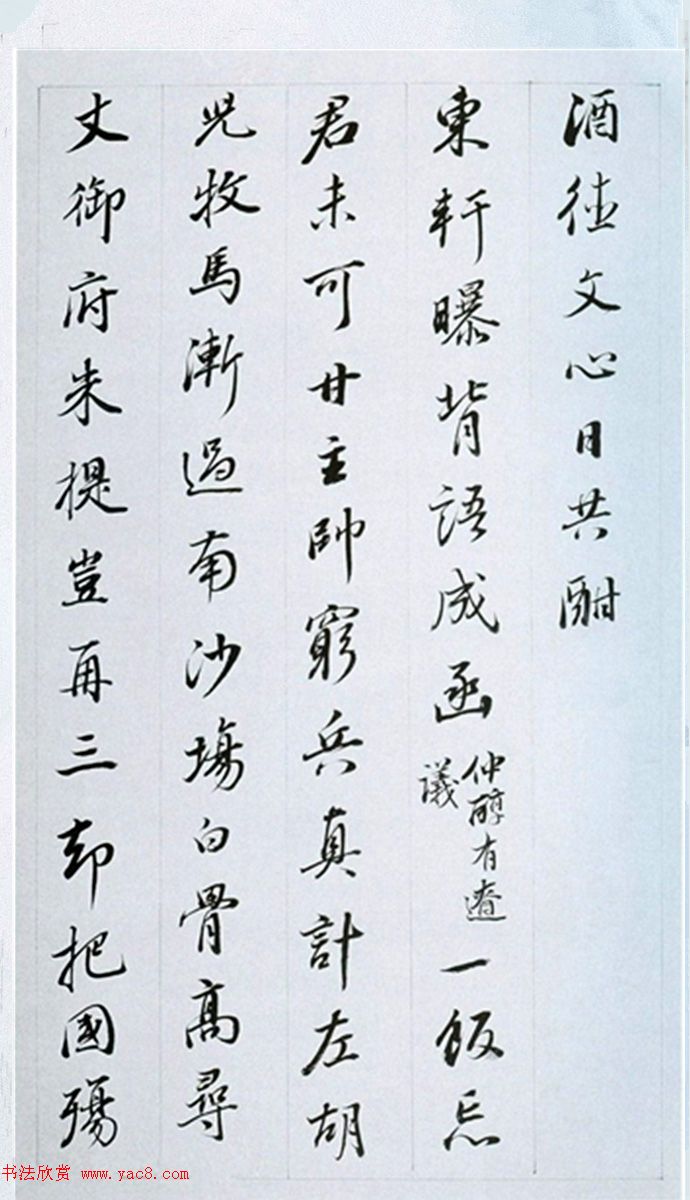 酒德文心日共酣
東軒曝背語成函
仲醇有遼
議
一飯忘
君未可甘主帥窮兵真計左胡
児牧馬漸過南沙場白骨高尋
丈御府朱提豈再三却把國殤
书法欣赏 www.yac8.com